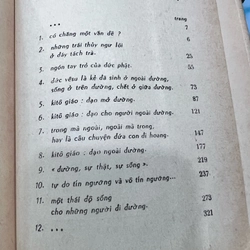 trang
• • •
1. có chăng một vấn đề ? 7
2. những trái thủy ngư lôi 6
ở đáy tách trà.
3. ngón tay trỏ của đức phật. 25
55
4. đức yêsu là kẻ đã sinh ở ngoài đường,
sống ở trên đường, chết ở giữa đường. 73
5. kitô giáo : đạo mở đường. 81
6. kitô giáo : đạo cho người ngoài đường. 87
121
7. trong mà ngoài, ngoài mà trong,
hay là câu chuyện đứa con đi hoang. 147
8. kitô giáo : đạo ngoài đường. 177
9. « đường, sự thật, sự sống ». 219
10. tự do tín ngưỡng và vô tín ngưỡng... 237
11. một thái độ sống 273
cho những người đi đường. 321
12. ...